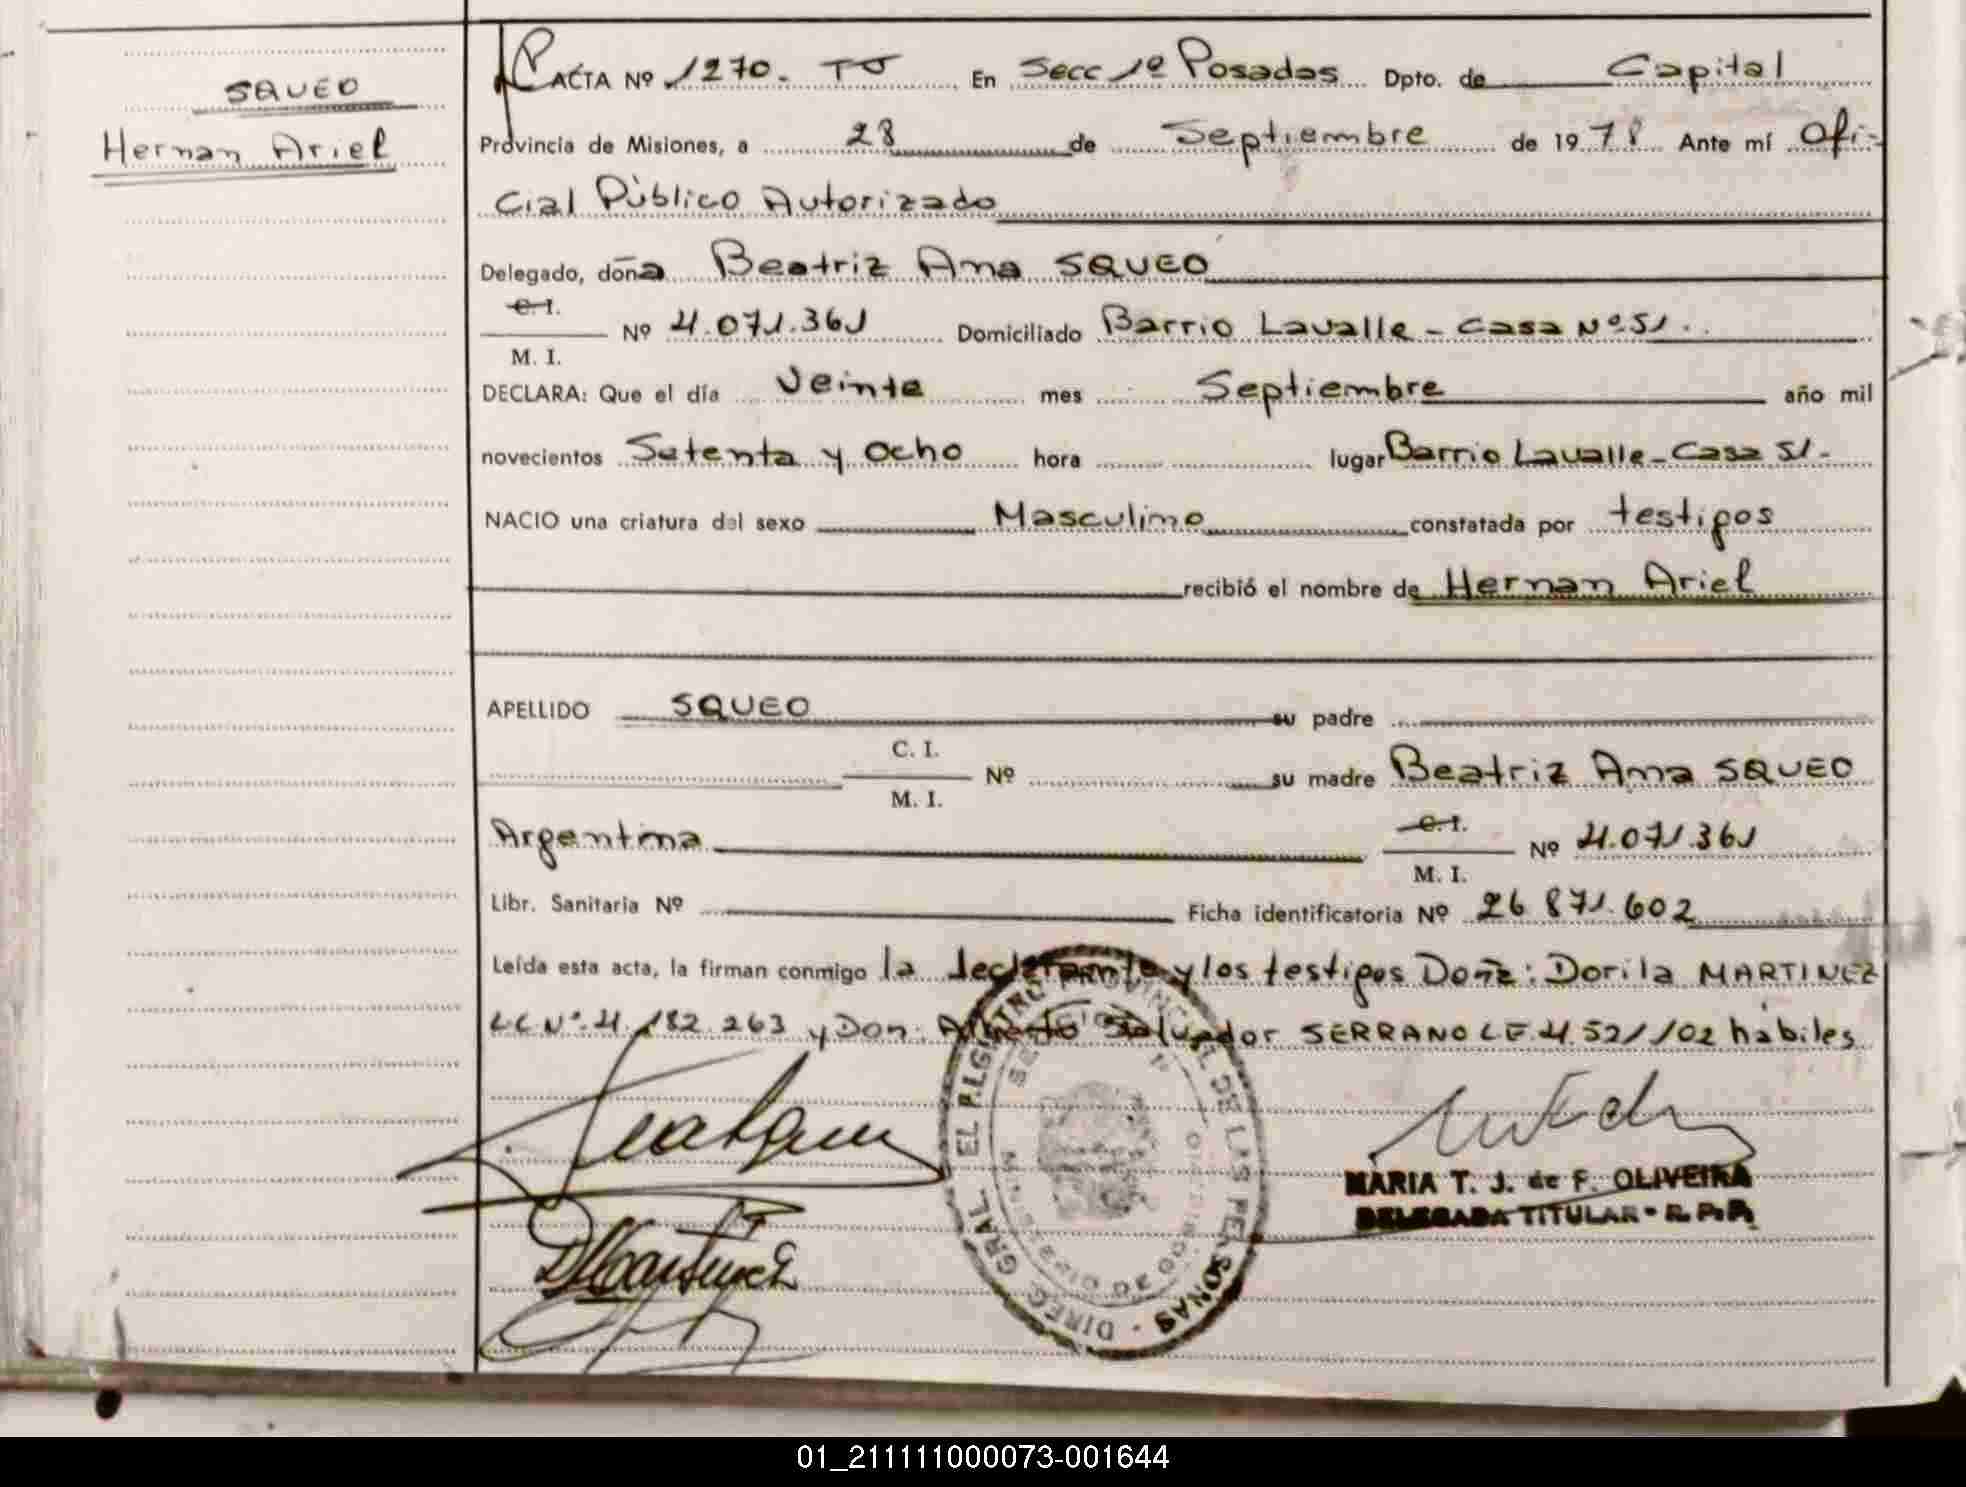 SQUEO
Hernan Ariel
ACTA Nº 1270. TJ En Secc 1º Posadas Dpto. de Capital
Provincia de Misiones, a 28 de Septiembre de 1978 Ante mí Ofi-
cial Público Autorizado
Delegado, doña Beatriz Ana SQUEO
C. I.
Nº 4.071.361 Domiciliado Barrio Lavalle - Casa Nº 51.
M. I.
DECLARA: Que el día Veinte mes Septiembre año mil
novecientos Setenta y Ocho hora lugar Barrio Lavalle - Casa 51.
NACIO una criatura del sexo Masculino constatada por testigos
recibió el nombre de Hernan Ariel
APELLIDO SQUEO su padre
C. I.
Nº su madre Beatriz Ana SQUEO
M. I.
Argentina C. I. Nº 4.071.361
M. I.
Libr. Sanitaria Nº Ficha identificatoria Nº 26 871.602
Leída esta acta, la firman conmigo la declarante y los testigos Doña: Dorila MARTINEZ
LC Nº. 4.182.263 y Don: Alberto Salvador SERRANO LE.4.521102 hábiles
DMartinez
DIREC. GRAL. DEL REGISTRO PROVINCIAL DE LAS PERSONAS
MARIA T. J. de F. OLIVEIRA
DELEGADA TITULAR - R. P. P.
01_211111000073-001644